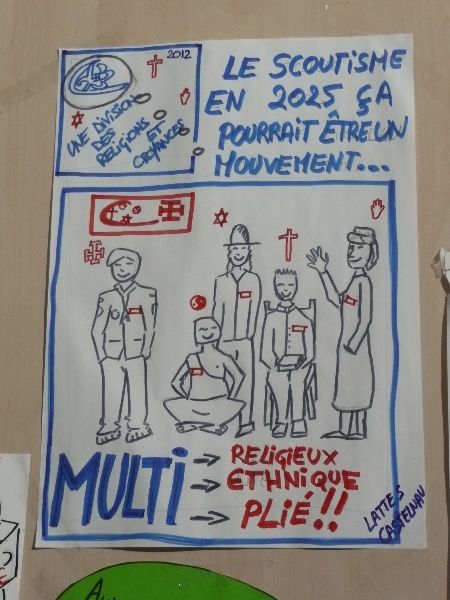 2012
UNE DIVISION
DES
RELIGIONS
ET
CROYANCES
LE SCOUTISME
EN 2025 ÇA
POURRAIT ÊTRE UN
MOUVEMENT...
MULTI → RELIGIEUX
→ ETHNIQUE
→ PLIÉ!!
LATTES
CASTELNAU